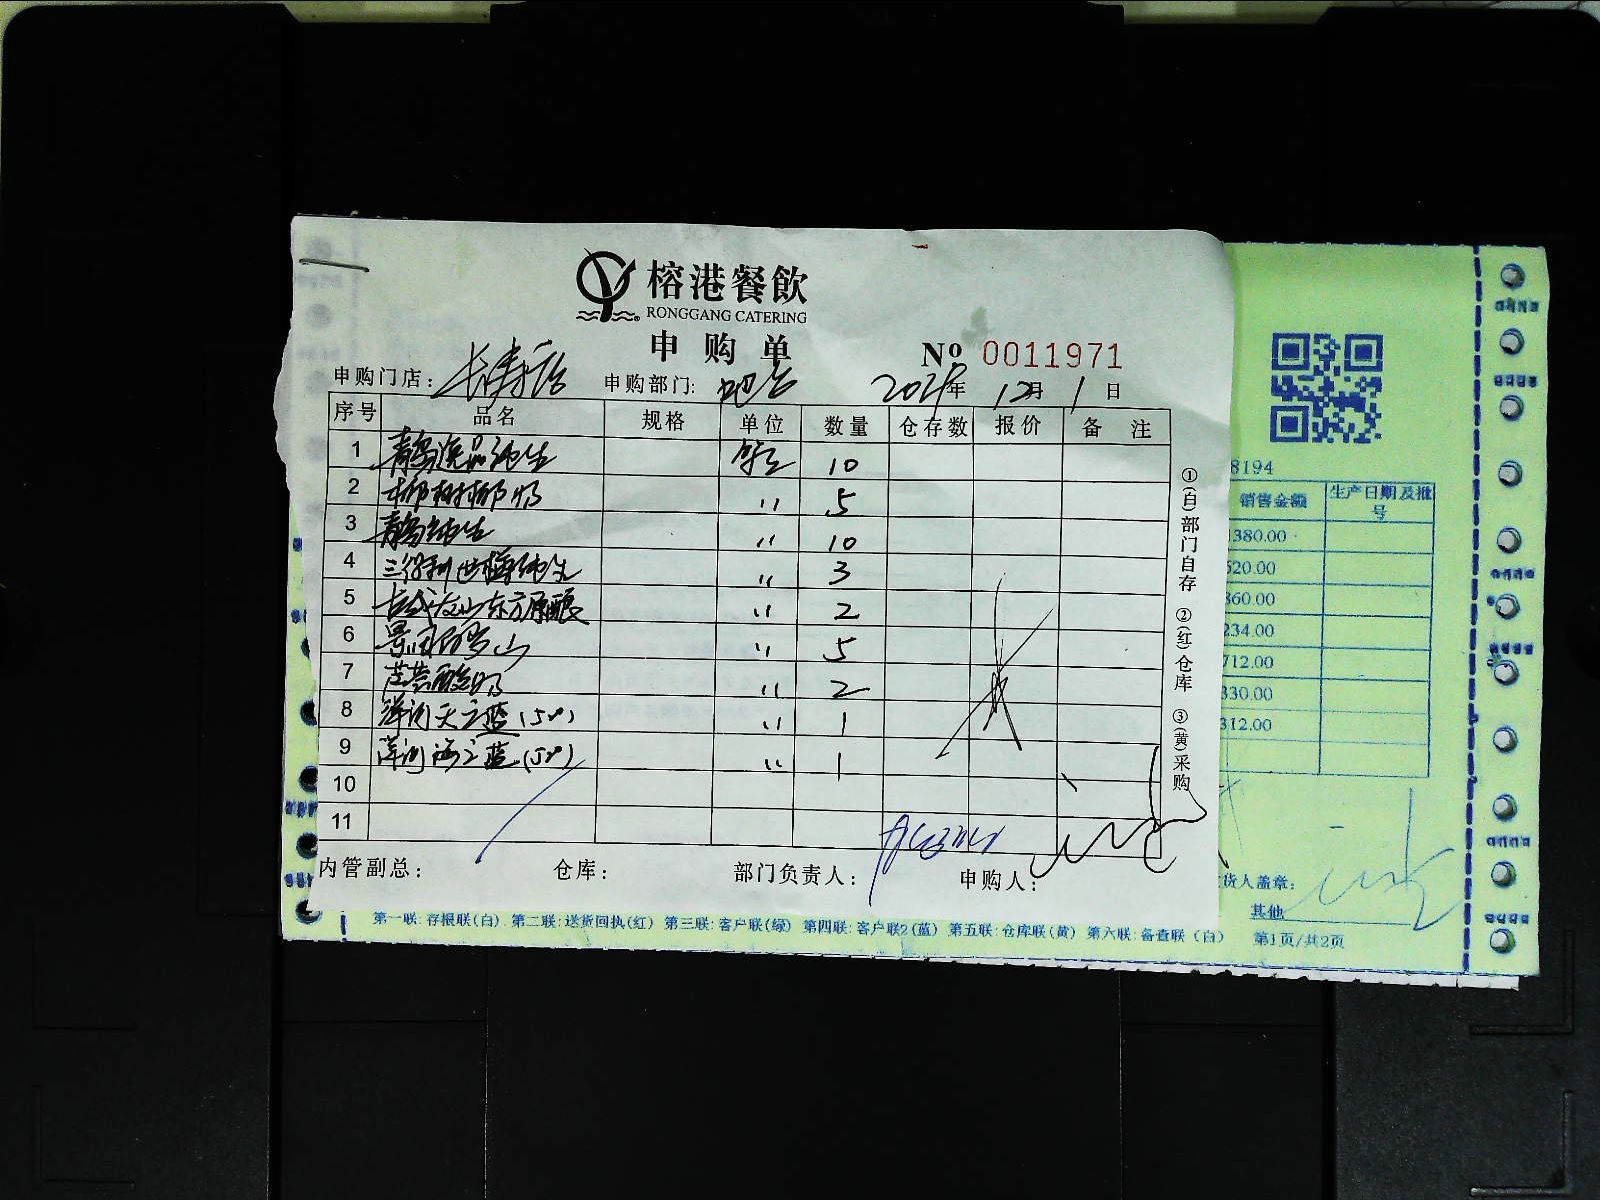 榕港餐飲
RONGGANG CATERING
申购单
№ 0011971
申购门店: 长寿路 申购部门: 吧台 年 12月 1日
序号 品名 规格 单位 数量 仓存数 报价 备注
1 青岛逸品纯生 10
2 椰树椰奶 〃 5
3 青岛纯生 〃 10
4 三得利 纯生 〃 3
5 古越龙山东方原酿 〃 2
6 景田百岁山 〃 5
7 芦荟酸奶 〃 2
8 洋河天之蓝 〃 1
9 洋河海之蓝 〃 1
10
11
内管副总: 仓库: 部门负责人: 申购人:
①(白)部门自存 ②(红)仓库 ③(黄)采购
8194
销售金额 生产日期及批号
380.00
520.00
360.00
234.00
712.00
330.00
312.00
货人盖章:
其他
第一联:存根联(白) 第二联:送货回执(红) 第三联:客户联(绿) 第四联:客户联2(蓝) 第五联:仓库联(黄) 第六联:备查联(白) 第1页/共2页